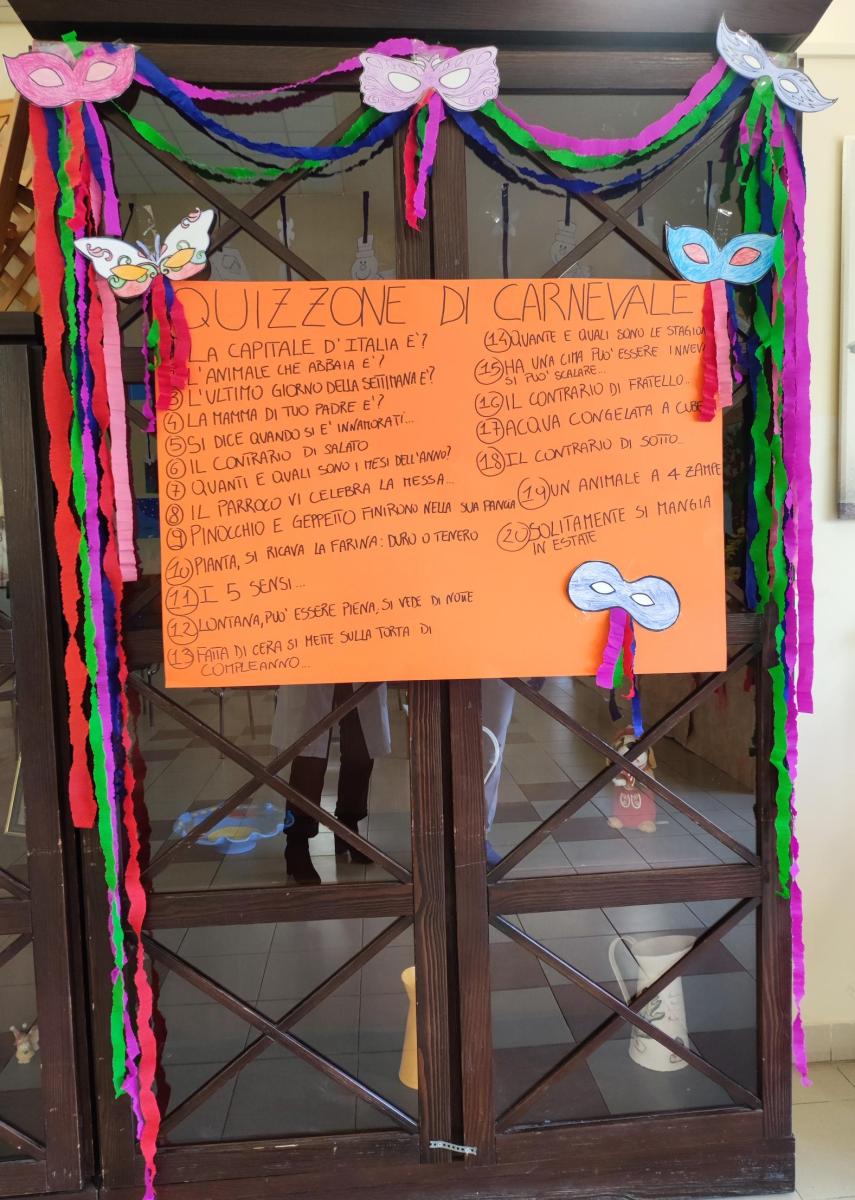 QUIZZONE DI CARNEVALE
LA CAPITALE D'ITALIA E'?
L'ANIMALE CHE ABBAIA E'?
3 L'ULTIMO GIORNO DELLA SETTIMANA E'?
4 LA MAMMA DI TUO PADRE E'?
5 SI DICE QUANDO SI E' INNAMORATI...
6 IL CONTRARIO DI SALATO
7 QUANTI E QUALI SONO I MESI DELL'ANNO?
8 IL PARROCO VI CELEBRA LA MESSA...
9 PINOCCHIO E GEPPETTO FINIRONO NELLA SUA PANCIA
10 PIANTA, SI RICAVA LA FARINA: DURO O TENERO
11 I 5 SENSI...
12 LONTANA, PUO' ESSERE PIENA, SI VEDE DI NOTTE
13 FATTA DI CERA SI METTE SULLA TORTA DI
COMPLEANNO...
14 QUANTE E QUALI SONO LE STAGIO
15 HA UNA CIMA PUO' ESSERE INNEV
SI PUO' SCALARE...
16 IL CONTRARIO DI FRATELLO..
17 ACQUA CONGELATA A CUBE
18 IL CONTRARIO DI SOTTO...
19 UN ANIMALE A 4 ZAMPE
20 SOLITAMENTE SI MANGIA
IN ESTATE